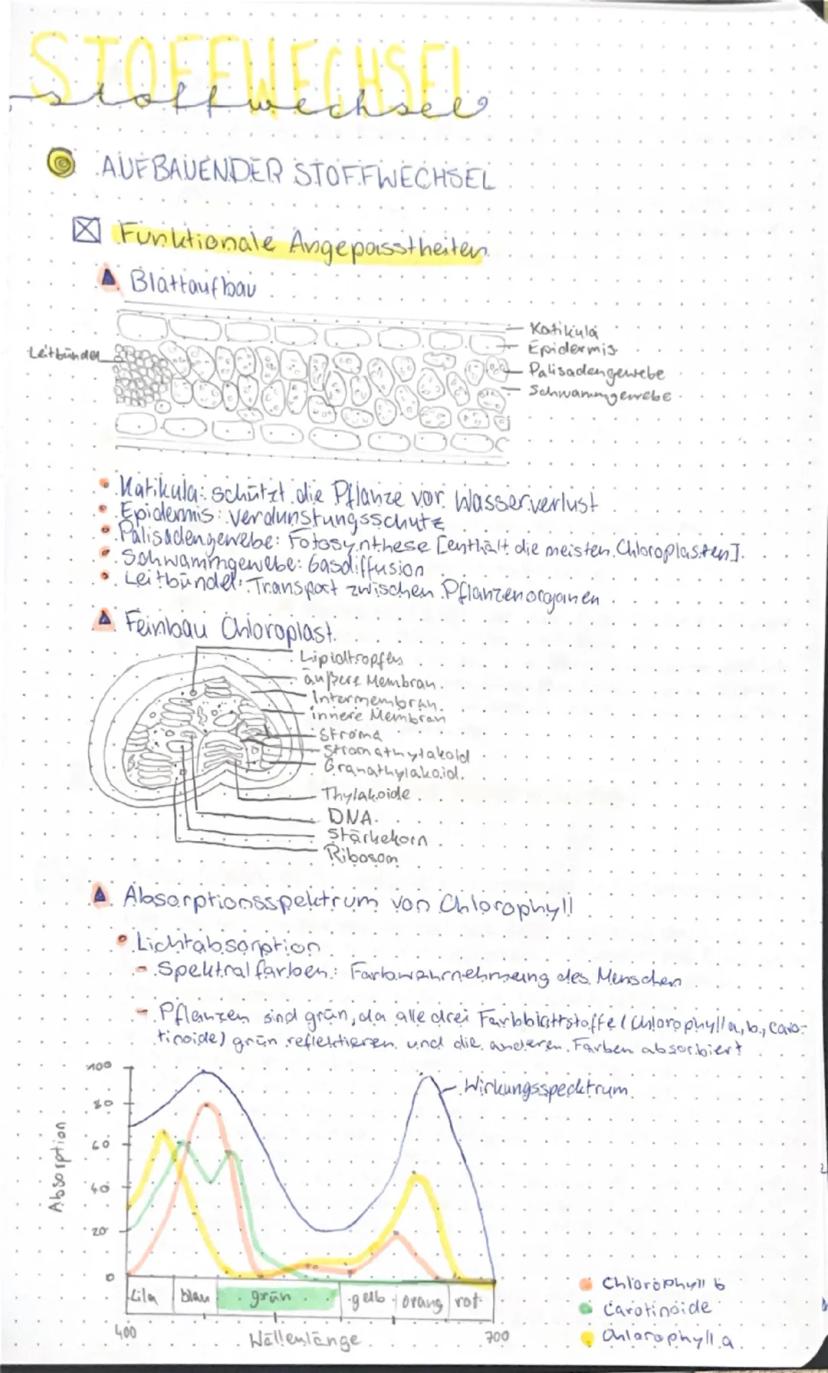 STOFFWECHSEL
stoffwechsel
AUFBAUENDER STOFFWECHSEL
Funktionale Angepasstheiten
Blattaufbau
Leitbündel
Katikula
Epidermis
Palisadengewebe
Schwammgewebe
Katikula: schützt die Pflanze vor Wasserverlust
Epidermis: Verdunstungsschutz
Palisadengewebe: Fotosynthese [enthält die meisten Chloroplasten].
Schwammgewebe: Gasdiffusion
Leitbündel: Transport zwischen Pflanzenorganen
Feinbau Chloroplast
Lipidtropfen
äußere Membran
Intermembran.
innere Membran
Stroma
Stromathylakoid
Granathylakoid.
Thylakoide
DNA
Stärkekorn
Ribosom
Absorptionsspektrum von Chlorophyll
Lichtabsorption
- Spektralfarben: Farbwahrnehmung des Menschen
- Pflanzen sind grün, da alle drei Farbblattstoffe (Chlorophyll a, b, Caro-
tinoide) grün reflektieren und die anderen Farben absorbiert
Wirkungsspecktrum
Absorption
100
80
60
40
20
0
Lila blau grün gelb orang rot
400 Wällenlänge 700
Chlorophyll b
Carotinoide
Chlorophyll a